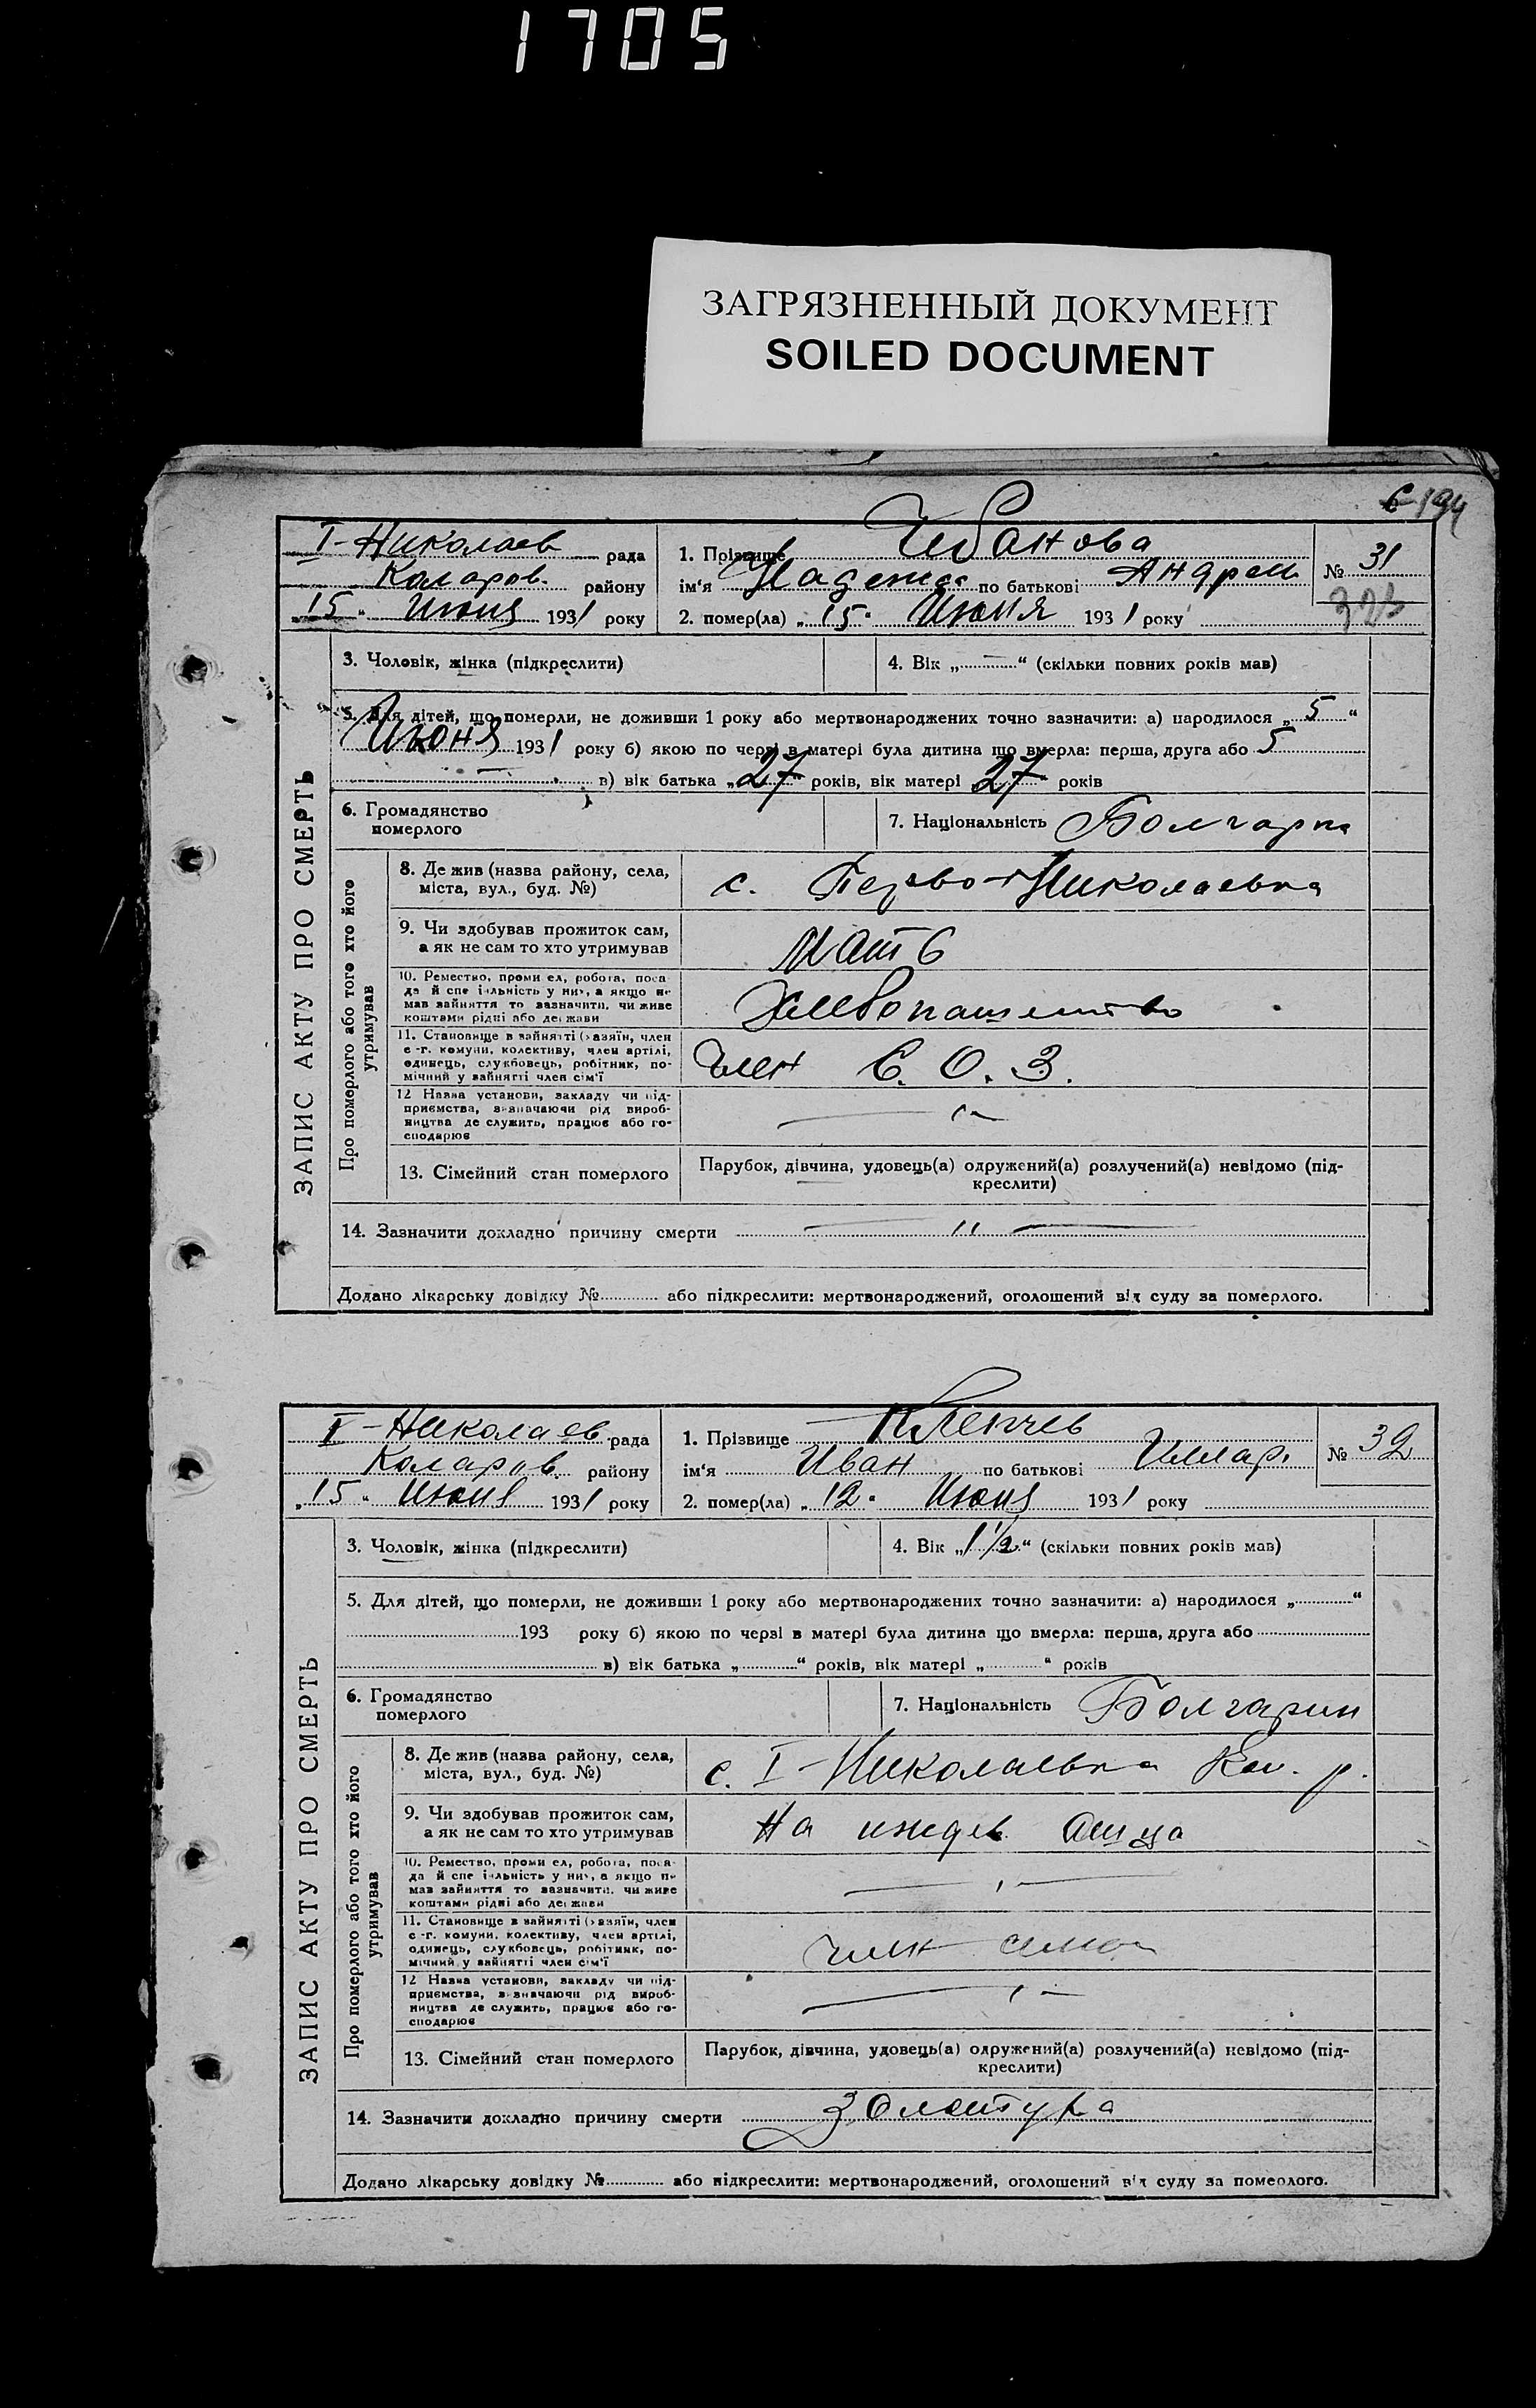 1705
ЗАГРЯЗНЕННЫЙ ДОКУМЕНТ
SOILED DOCUMENT
194
ЗАПИС АКТУ ПРО СМЕРТЬ
І-Николаев рада
Коларов. району
„15“ Июня 1931 року
1. Прізвище Чебанова
ім‘я Надежда по батькові Андреев
2. помер(ла) „15“ Июня 1931 року
№ 31
3. Чоловік, жінка (підкреслити)
4. Вік „—“ (скільки повних років мав)
5. Для дітей, що померли, не доживши 1 року або мертвонароджених точно зазначити: а) народилося „5“
Июня 1931 року б) якою по черзі в матері була дитина що вмерла: перша, друга або 5
в) вік батька „27“ років, вік матері 27 років
6. Громадянство
померлого
7. Національність Болгарка
Про померлого або того хто його
утримував
8. Де жив (назва району, села,
міста, вул., буд. №)
с. Перво-Николаевка
9. Чи здобував прожиток сам,
а як не сам то хто утримував
Мать
10. Ремество, промисел, робота, поса-
да й спеціяльність у них, а якщо не
мав зайняття то зазначити, чи живе
коштами рідні або держави
Хлебопашество
11. Становище в зайнятті (хазяїн, член
с.-г. комуни, колективу, член артілі,
одинець, службовець, робітник, по-
мічний у зайнятті член сім'ї
член С. О. З.
12 Назва установи, закладу чи під-
приємства, зазначаючи рід вироб-
ництва де служить, працює або го-
сподарює
13. Сімейний стан померлого
Парубок, дівчина, удовець(а) одружений(а) розлучений(а) невідомо (під-
креслити)
14. Зазначити докладно причину смерти — “ —
Додано лікарську довідку № або підкреслити: мертвонароджений, оголошений від суду за померлого.
ЗАПИС АКТУ ПРО СМЕРТЬ
І-Николаев рада
Коларов. району
„15“ Июня 1931 року
1. Прізвище
ім‘я Иван по батькові
2. помер(ла) „12“ Июня 1931 року
№ 32
3. Чоловік, жінка (підкреслити)
4. Вік „1 ½“ (скільки повних років мав)
5. Для дітей, що померли, не доживши 1 року або мертвонароджених точно зазначити: а) народилося „ “
193 року б) якою по черзі в матері була дитина що вмерла: перша, друга або
в) вік батька „ “ років, вік матері „ “ років
6. Громадянство
померлого
7. Національність Болгарин
Про померлого або того хто його
утримував
8. Де жив (назва району, села,
міста, вул., буд. №)
с. І-Николаевка Кол. р.
9. Чи здобував прожиток сам,
а як не сам то хто утримував
На иждев. отца
10. Ремество, промисел, робота, поса-
да й спеціяльність у них, а якщо не
мав зайняття то зазначити, чи живе
коштами рідні або держави
11. Становище в зайнятті (хазяїн, член
с.-г. комуни, колективу, член артілі,
одинець, службовець, робітник, по-
мічний у зайнятті член сім'ї
член
12 Назва установи, закладу чи під-
приємства, зазначаючи рід вироб-
ництва де служить, працює або го-
сподарює
13. Сімейний стан померлого
Парубок, дівчина, удовець(а) одружений(а) розлучений(а) невідомо (під-
креслити)
14. Зазначити докладно причину смерти Золотуха
Додано лікарську довідку № або підкреслити: мертвонароджений, оголошений від суду за померлого.